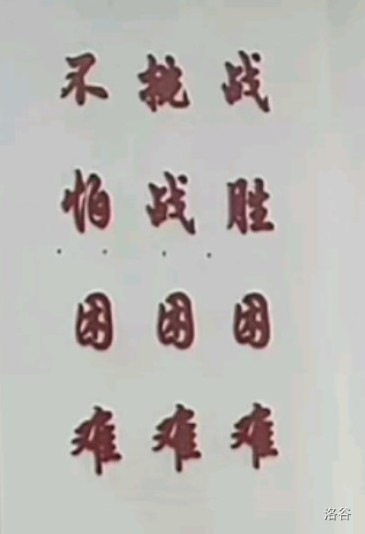 不怕困难
挑战困难
战胜困难
洛谷